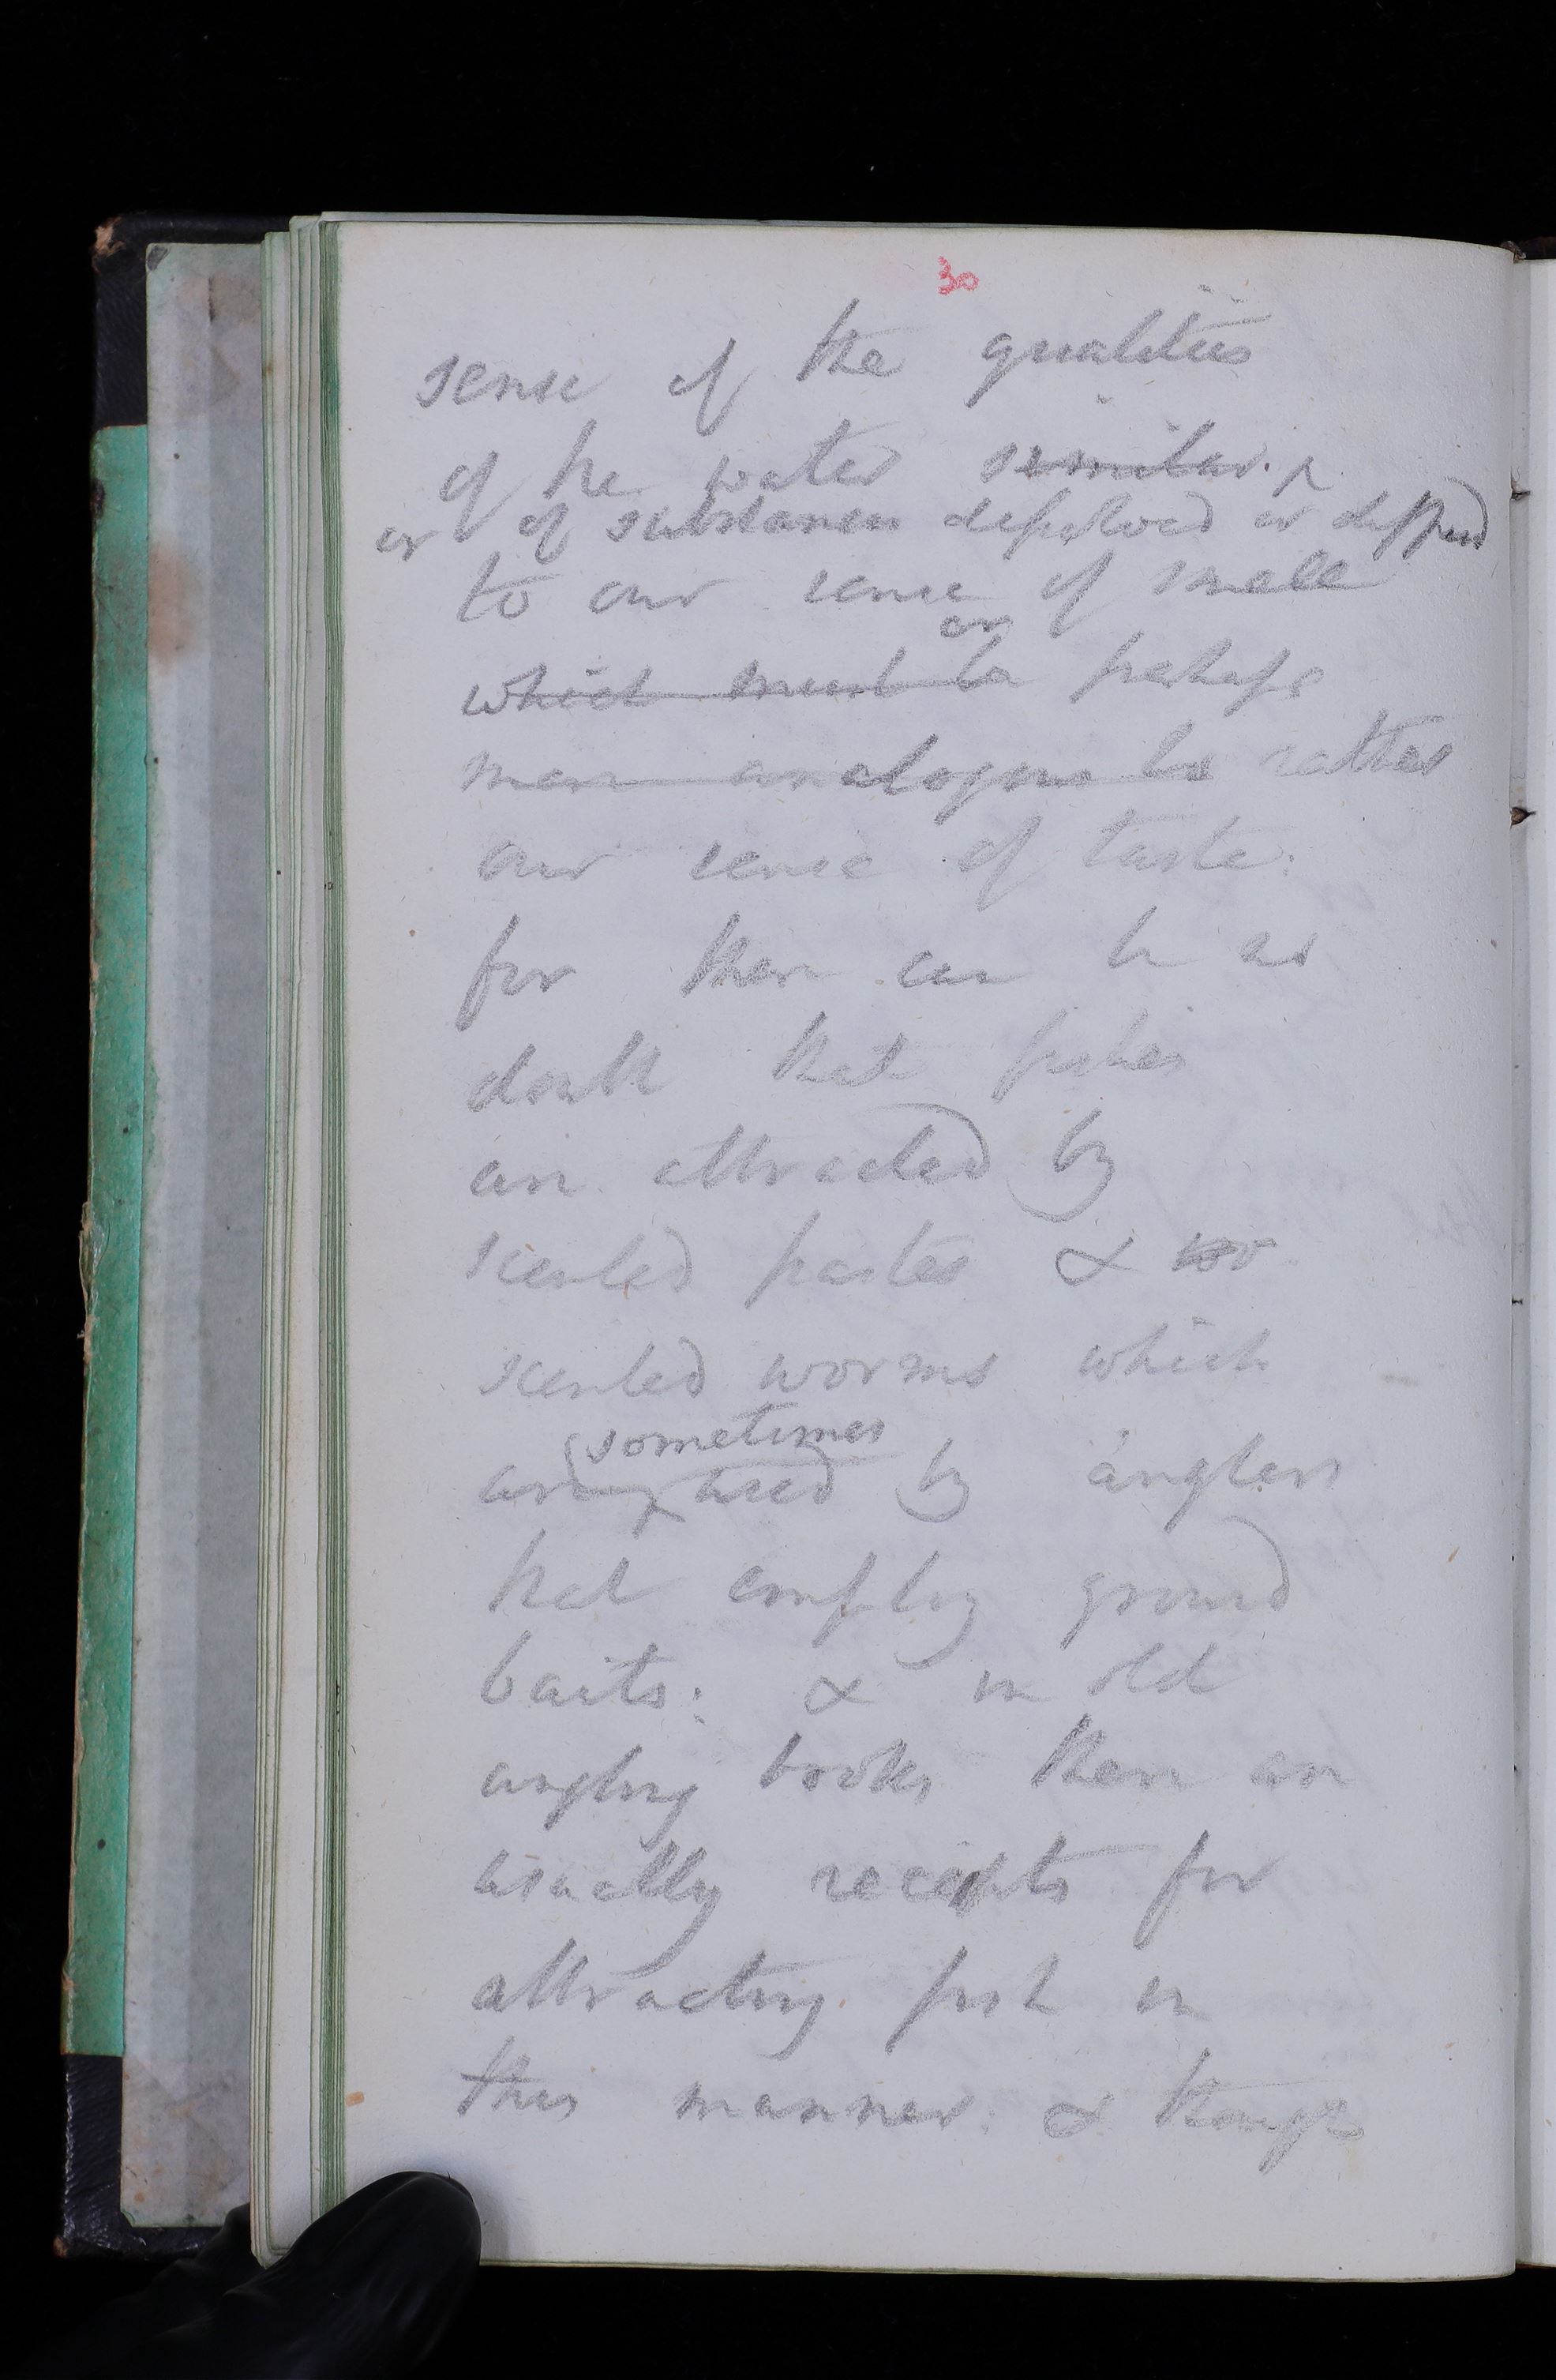 30
sense of the qualities
of the water similar
or of substances dissolved or diffused
to our sense of smell
or
which must be perhaps
more analogous to rather
our sense of taste:
for there can be no
doubt that fishes
are attracted by
scented pastes & wo
scented worms which
sometimes
are used by anglers
that employ ground
baits: & in old
angling books there are
usually receipts for
attracting fish in
this manner. & though